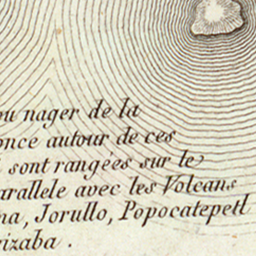 ou nager de la
once autour de ces
sont rangées sur le
arallele avec les Volcans
na, Jorullo, Popocatepetl
rizaba.